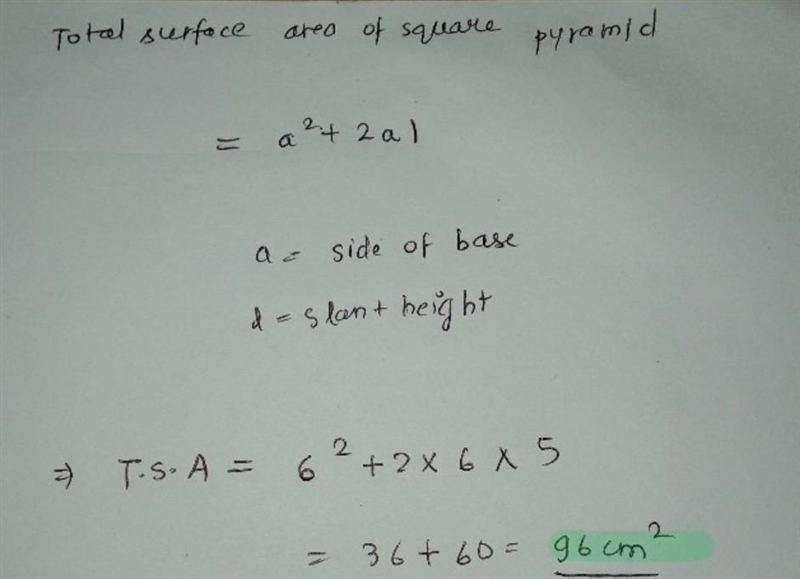 Total surface area of square pyramid
= a² + 2al
a = side of base
l = slant height
⇒ T.S.A = 6² + 2 × 6 × 5
= 36 + 60 = 96 cm²